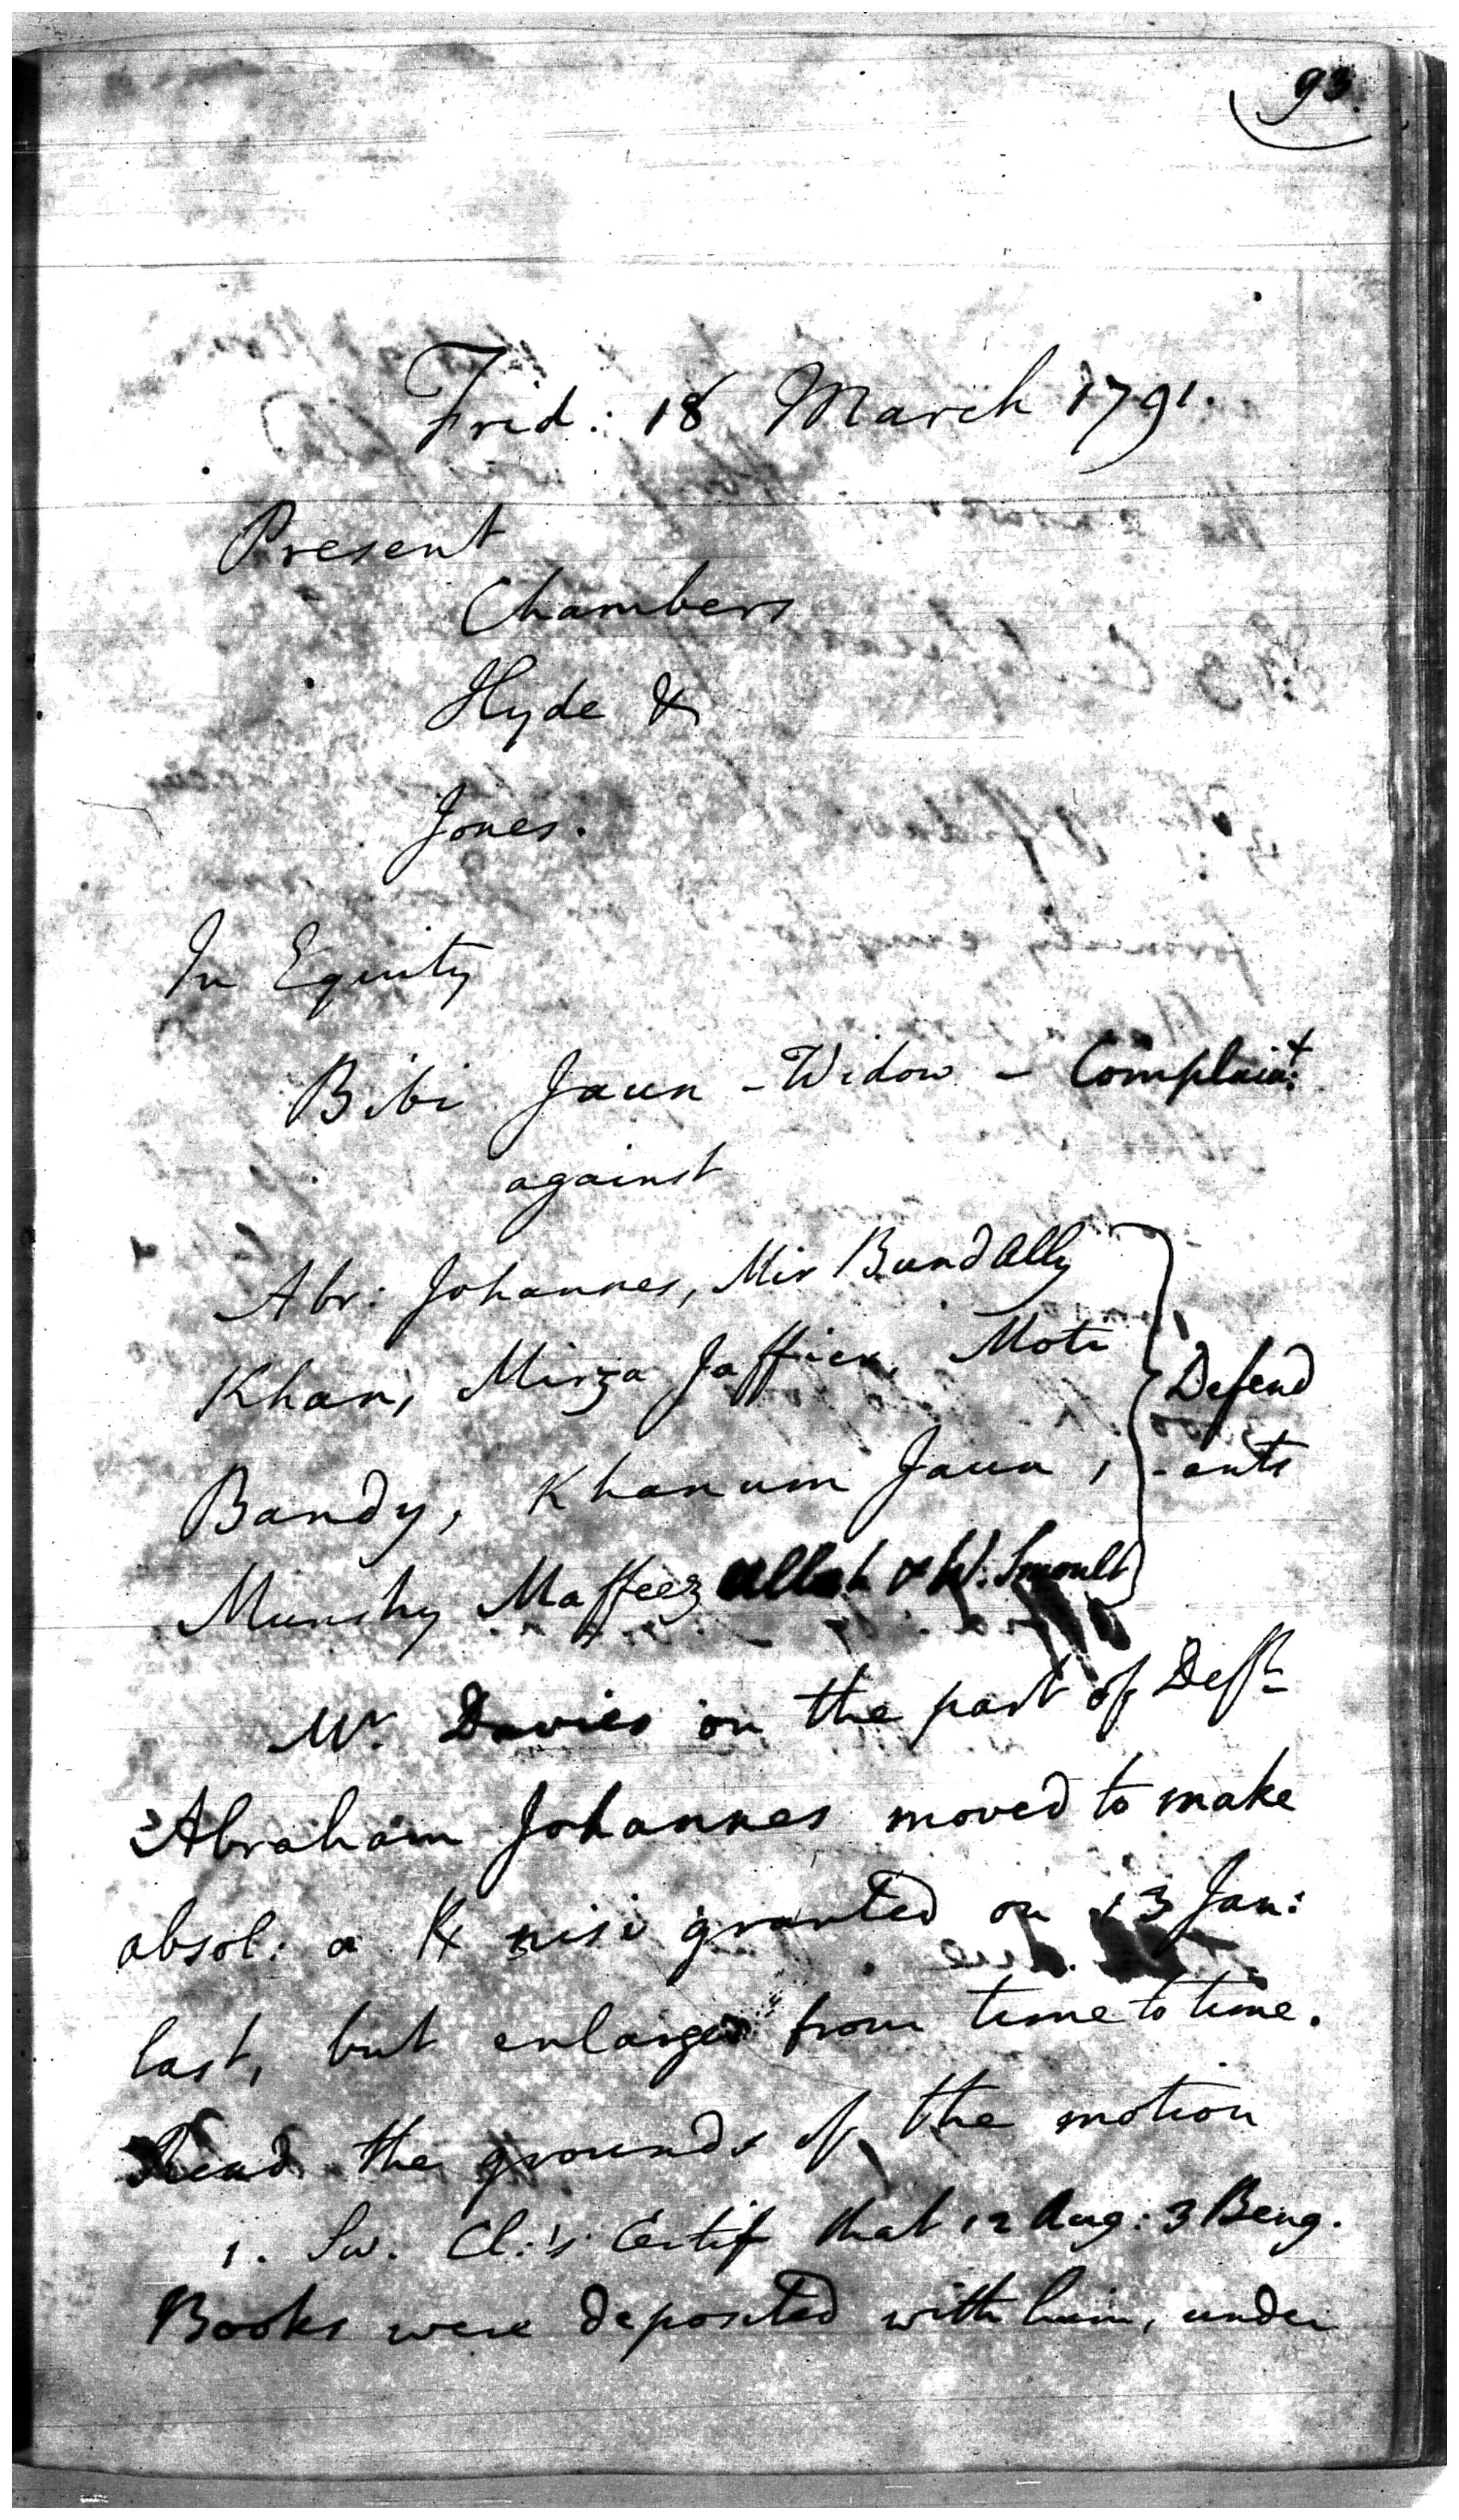 93.
Frid: 18 March 1791.
Present
Chambers
Hyde &
Jones.
In Equity
Bibi Jaun - Widow - Complain:t
against
Abr: Johannes, Mir Bundally
Khan, Mirza Jaffier, Moti
Bandy, Khanum Jaun,
Munshy Maffeez ullah & W. Smoult
Defend
-ants
Mr. Davies on the part of Deft
Abraham Johannes moved to make
absol: a R nisi granted on 13 Jan:
last, but enlarged from time to time.
Read the grounds of the motion
1. Sw. Cl:'s Certif that 12 Aug: 3 Beng.
Books were deposited with him, under